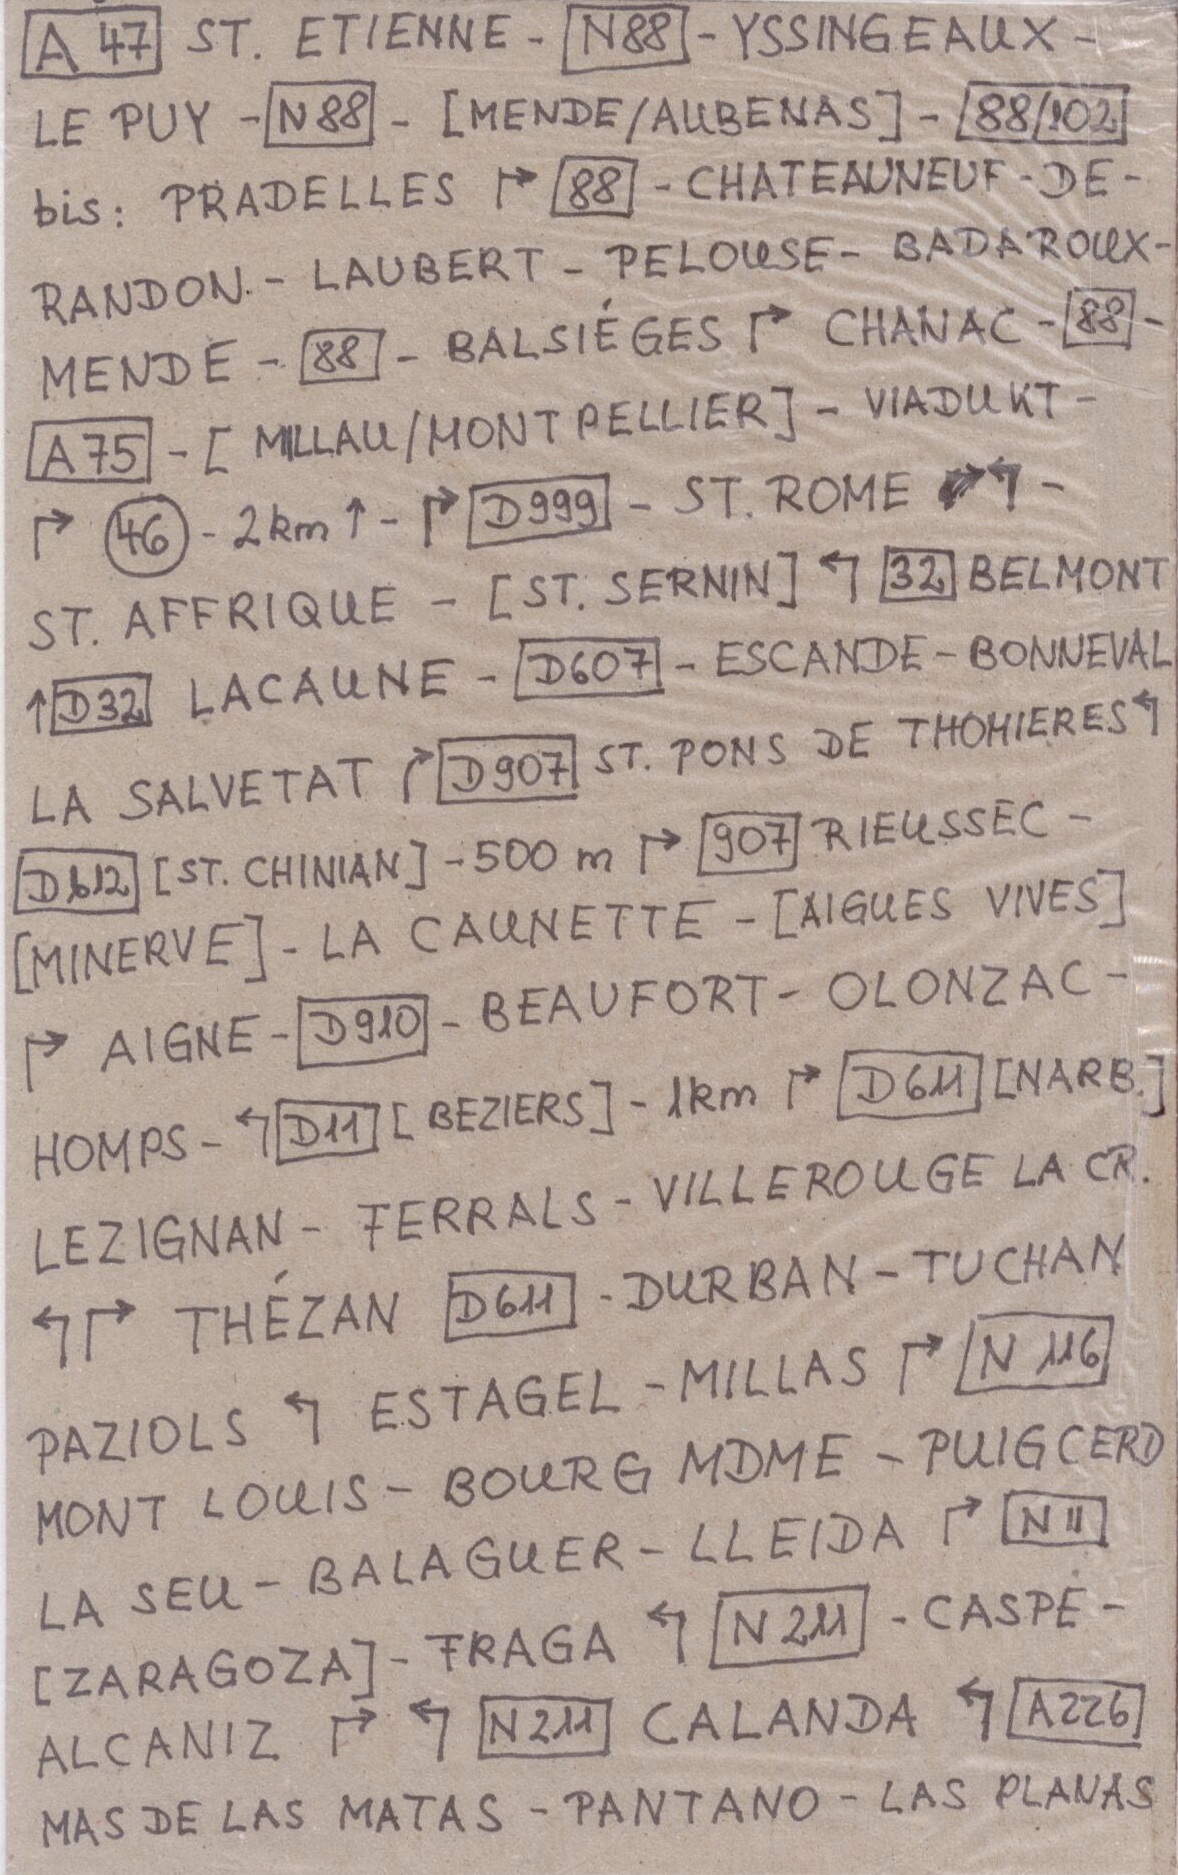 A 47 ST. ETIENNE - N88 - YSSINGEAUX -
LE PUY - N88 - [MENDE/AUBENAS] - 88/102
bis: PRADELLES ↱ 88 - CHATEAUNEUF-DE-
RANDON - LAUBERT - PELOUSE - BADAROUX -
MENDE - 88 - BALSIÉGES ↱ CHANAC - 88 -
A75 - [MILLAU/MONTPELLIER] - VIADUKT -
↱ 46 - 2km ↑ - ↱ D999 - ST. ROME ↰ -
ST. AFFRIQUE - [ST. SERNIN] ↰ 32 BELMONT
↑ D32 LACAUNE - D607 - ESCANDE - BONNEVAL
LA SALVETAT ↱ D907 ST. PONS DE THOMIERES ↰
D612 [ST. CHINIAN] - 500 m ↱ 907 RIEUSSEC -
[MINERVE] - LA CAUNETTE - [AIGUES VIVES]
↱ AIGNE - D910 - BEAUFORT - OLONZAC -
HOMPS - ↰ D11 [BEZIERS] - 1km ↱ D611 [NARB.]
LEZIGNAN - FERRALS - VILLEROUGE LA CR.
↰ ↱ THÉZAN D611 - DURBAN - TUCHAN
PAZIOLS ↰ ESTAGEL - MILLAS ↱ N 116
MONT LOUIS - BOURG MDME - PUIGCERD
LA SEU - BALAGUER - LLEIDA ↱ N II
[ZARAGOZA] - FRAGA ↰ N 211 - CASPE -
ALCANIZ ↱ ↰ N211 CALANDA ↰ A226
MAS DE LAS MATAS - PANTANO - LAS PLANAS